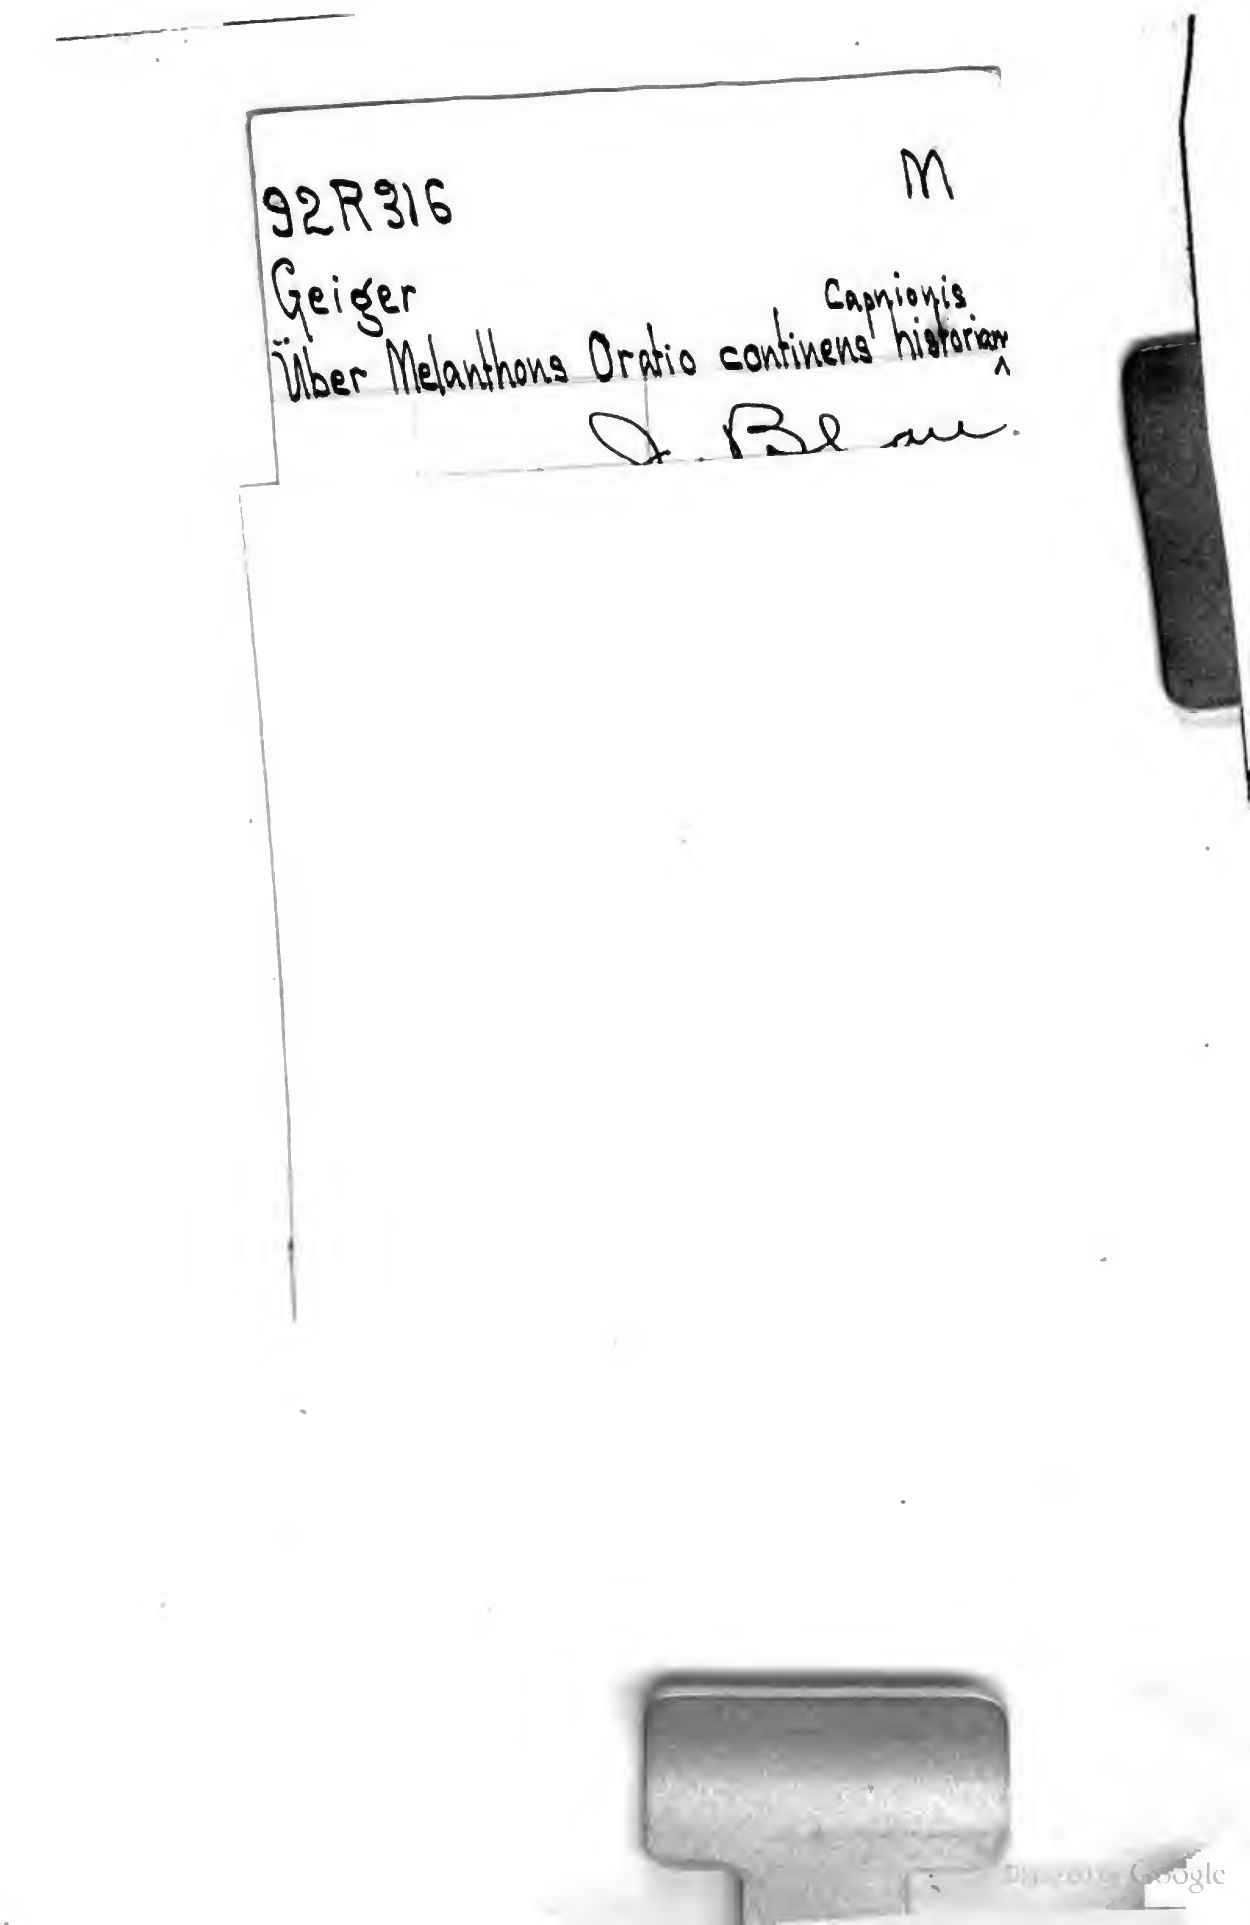 92R316 M
Geiger
Über Melanthons Oratio continens historiam ^ Capnionis
J. Blau.
Digitized by Google